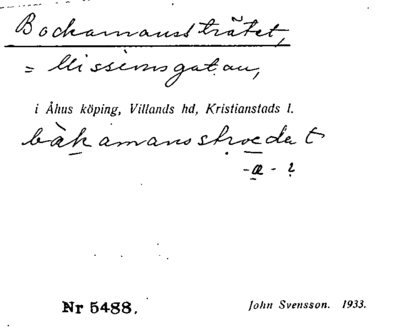 Bockamanssträtet,
= Missionsgatan,
i Åhus köping, Villands hd, Kristianstads l.
båkamansstroedet
-æ- ?
Nr 5488. John Svensson. 1933.